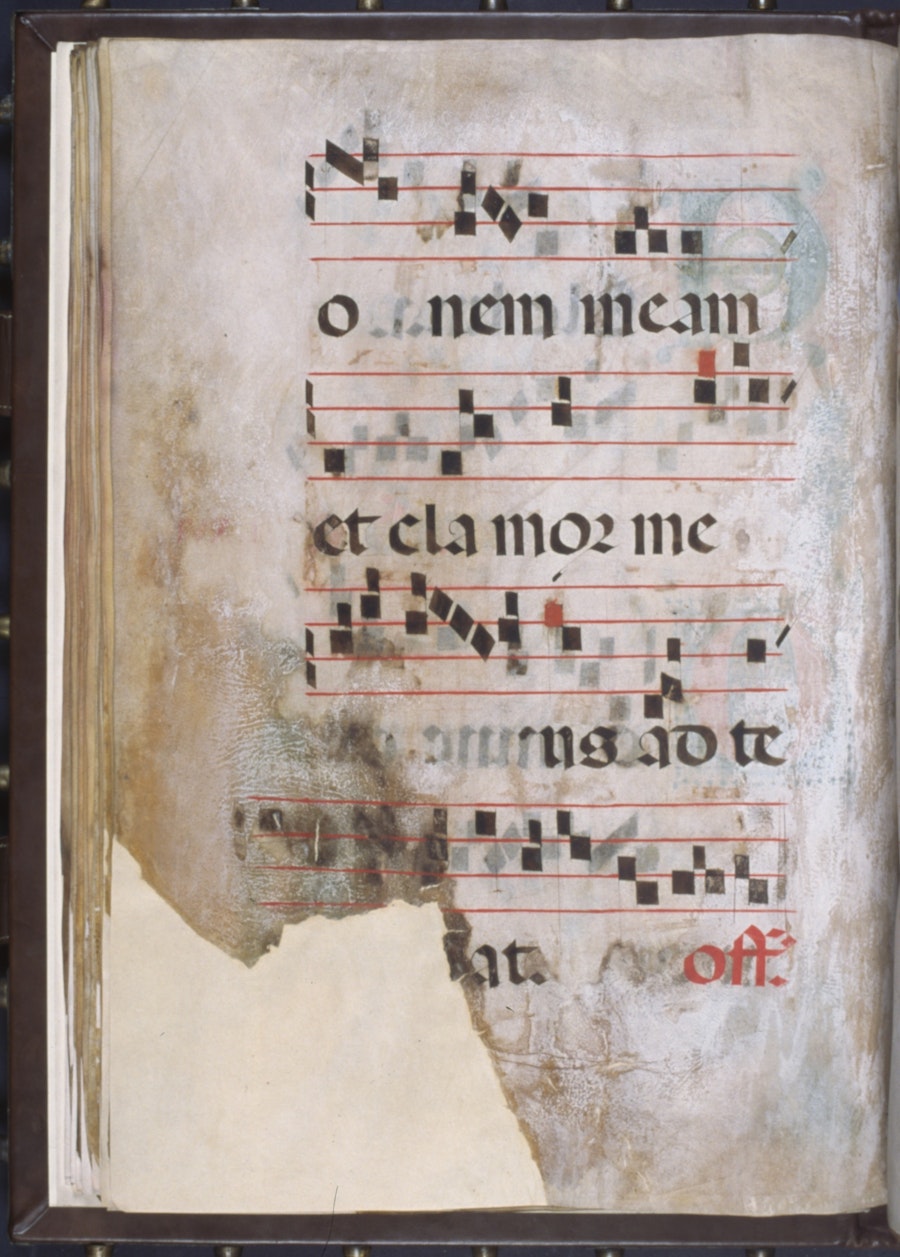 o nem meam
et cla mor me
us ad te
at. off.